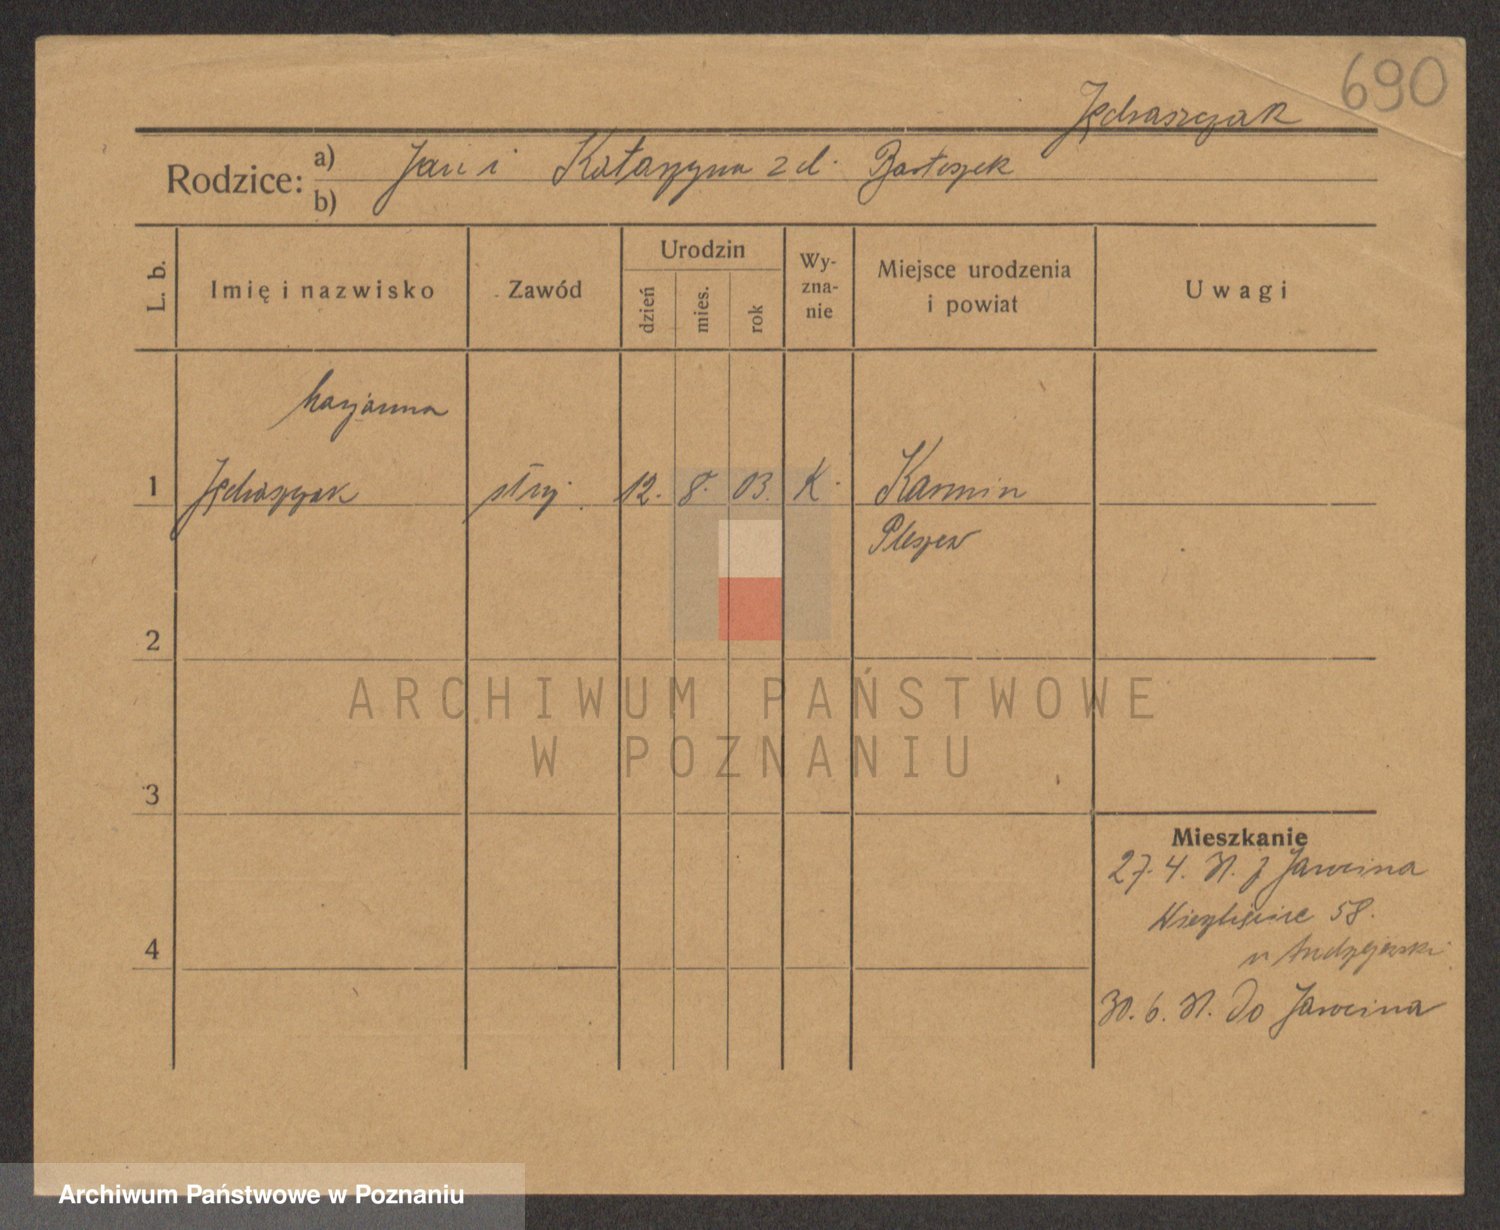 690
Jędraszczak
Rodzice: a) Jan i Katarzyna z d. Bartoszek
b)
L. b.
Imię i nazwisko
Zawód
Urodzin
dzień
mies.
rok
Wy-
zna-
nie
Miejsce urodzenia
i powiat
Uwagi
Marjanna
1 Jędraszczak służ. 12. 8. 03. K. Karmin
Pleszew
2
3
4
Mieszkanie
27. 4. 31. z Jarocina
58.
30. 6. 31. do Jarocina
ARCHIWUM PAŃSTWOWE
W POZNANIU
Archiwum Państwowe w Poznaniu